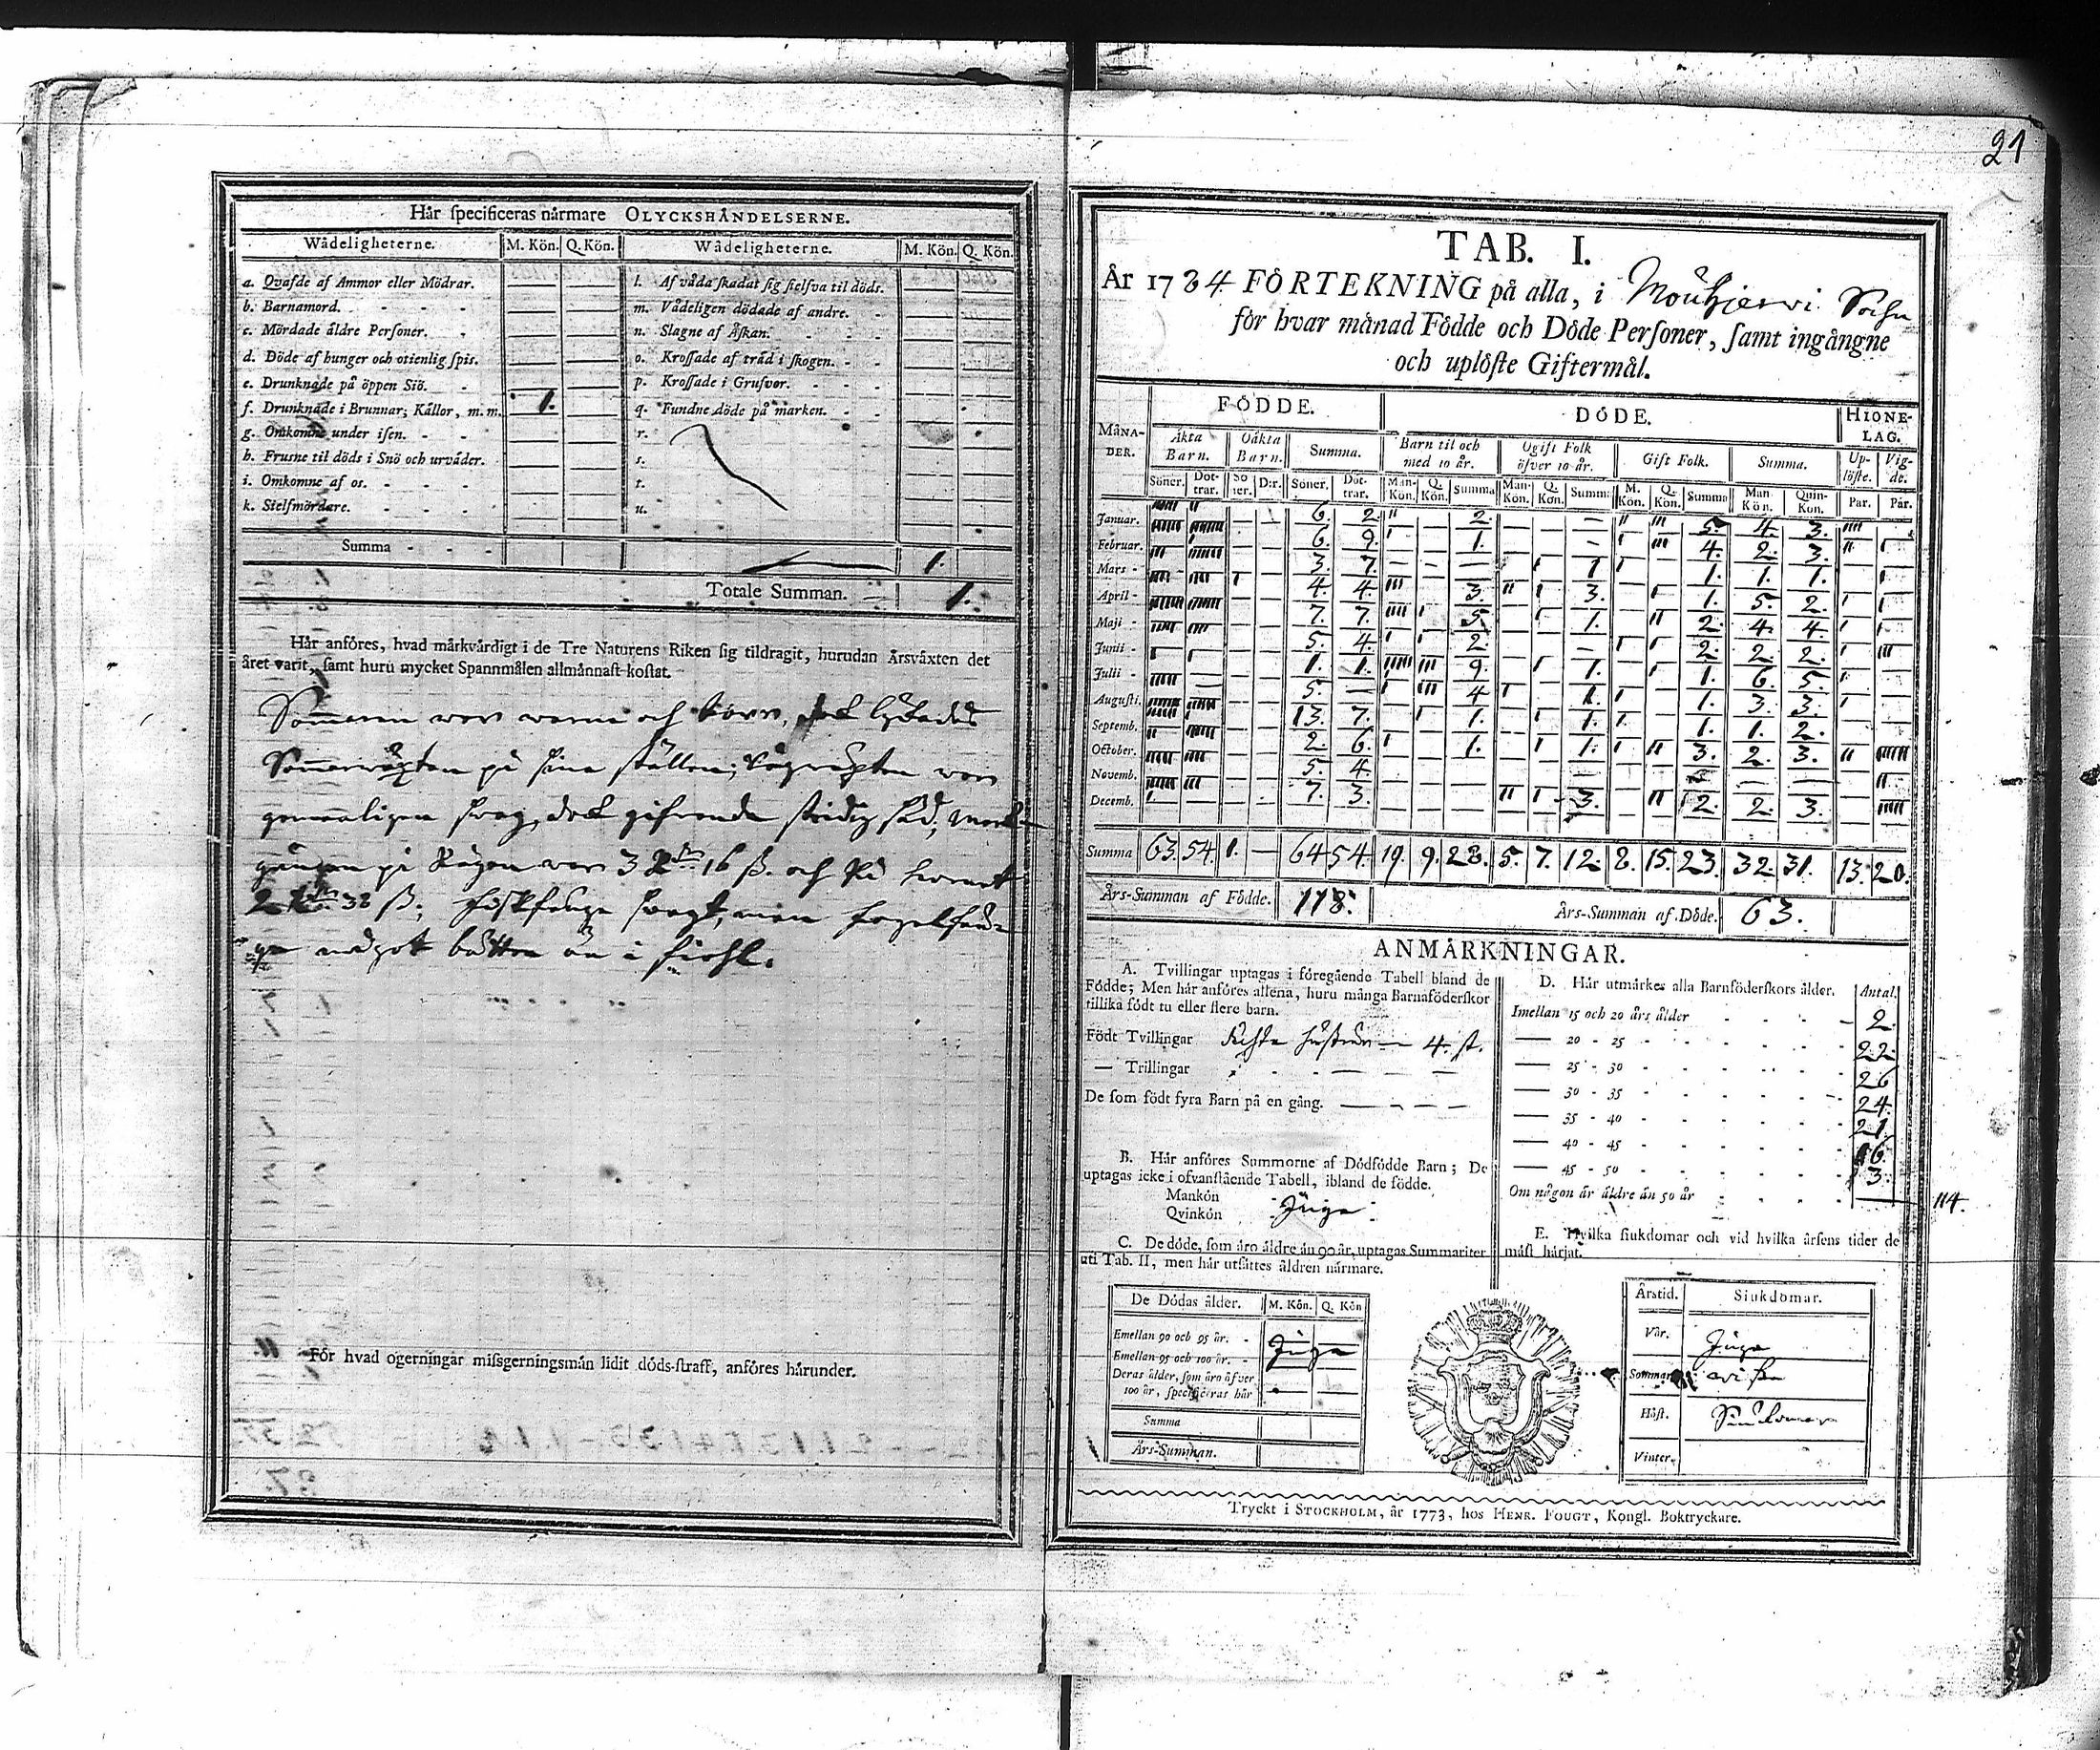 Här specificeras närmare OLYCKSHÄNDELSERNE.
Wådeligheterne. M. Kön. Q. Kön. Wådeligheterne. M. Kön. Q. Kön.
a. Qvafde af Ammor eller Mödrar. — — l. Af våda skadat sig sielfva til döds. — —
b. Barnamord. — — m. Vådeligen dödade af andre. — —
c. Mördade äldre Personer. — — n. Slagne af Åskan. — —
d. Döde af hunger och otienlig spis. — — o. Krossade af träd i skogen. — —
e. Drunknade på öppen Siö. — — p. Krossade i Grufvor. — —
f. Drunknade i Brunnar, Källor, m. m. 1. — q. Fundne döde på marken. — —
g. Omkomne under isen. — — r.
h. Frusne til döds i Snö och urväder. — — s.
i. Omkomne af os. — — t.
k. Sielfmördare. — — u.
Summa 1.
Totale Summan. 1.
Här anföres, hvad märkvärdigt i de Tre Naturens Riken sig tildragit, hurudan Årsväxten det
året varit, samt huru mycket Spannmålen allmännast kostat.
Sommaren war warm och torr, dock lyckades
Sommarwäxten på sina ställen; Rågwäxten war
genealigen swag, dock gifwande stridig säd; Mark-
gången på Rågen war 3 R 16 ß. och på kornet
2 32 ß; fiskfänge swagt, men fogelfän-
ge något bättre än i fiohl.
För hvad ogerningar missgerningsmän lidit döds-straff, anföres härunder.
21
TAB. I.
År 1784 FÖRTEKNING på alla, i Mouhijerwi Sochn
för hvar månad Födde och Döde Personer, samt ingångne
och uplöste Giftermål.
FÖDDE. DÖDE. HIONE-LAG.
MÅNA-DER. Äkta Barn. Oäkta Barn. Summa. Barn til och med 10 år. Ogift Folk öfver 10 år. Gift Folk. Summa. Up-löste. Vig-de.
Söner. Döt-trar. Sö ner. D:r. Söner. Döt-trar. Man-Kön. Q. Kön. Summa Man-Kön. Q. Kön. Summ: M. Kön. Q. Kön. Summa Man Kön. Quin-Kön. Par. Par.
Januar. 6. 2. 2. — 5. 4. 3.
Februar. 6. 9. 1. — 4. 2. 3.
Mars 3. 7. — 1 1. 1. 1.
April 4. 4. 3. 3. 1. 5. 2.
Maji 7. 7. 5. 1. 2. 4. 4.
Junii 5. 4. 2. — 2. 2. 2.
Julii 1. 1. 9. 1. 1. 6. 5.
Augusti. 5. — 4 1. 1. 3. 3.
Septemb. 13. 7. 1. 1. 1. 1. 2.
October. 2. 6. 1. 1. 3. 2. 3.
Novemb. 5. 4. — — — — —
Decemb. 7. 3. — 3. 2. 2. 3.
Summa 63. 54. 1. — 64 54. 19. 9. 28. 5. 7. 12. 8. 15. 23. 32. 31. 13. 20.
Års-Summan af Födde. 118. Års-Summan af Döde. 63.
ANMÄRKNINGAR.
A. Tvillingar uptagas i föregående Tabell bland de
Födde; Men här anföres allena, huru många Barnaföderskor
tillika födt tu eller flere barn.
Födt Tvillingar Äckta hustrur — 4. st.
— Trillingar — — —
De som födt fyra Barn på en gång. — — — —
B. Här anföres Summorne af Dödfödde Barn; De
uptagas icke i ofvanstående Tabell, ibland de födde.
Mankön
Qvinkön Inga
C. De döde, som äro äldre än 90 år, uptagas Summariter
uti Tab. II, men här utsättes åldren närmare.
De Dödas ålder. M. Kön. Q. Kön
Emellan 90 och 95 år.
Emellan 95 och 100 år. Inga
Deras ålder, som äro öfver
100 år, specificeras här
Summa
Års-Summan.
D. Här utmärkes alla Barnföderskors ålder. Antal.
Imellan 15 och 20 års ålder 2.
— 20 - 25 22.
— 25 - 30 26
— 30 - 35 24.
— 35 - 40 21.
— 40 - 45 16.
— 45 - 50 3.
Om någon är äldre än 50 år — 114.
E. Hvilka siukdomar och vid hvilka årsens tider de
mäst härjat.
Årstid. Siukdomar.
Vår. Inga
Sommar wissa
Höst. Siukdomar
Vinter.
Tryckt i STOCKHOLM, år 1773, hos HENR. FOUGT, Kongl. Boktryckare.